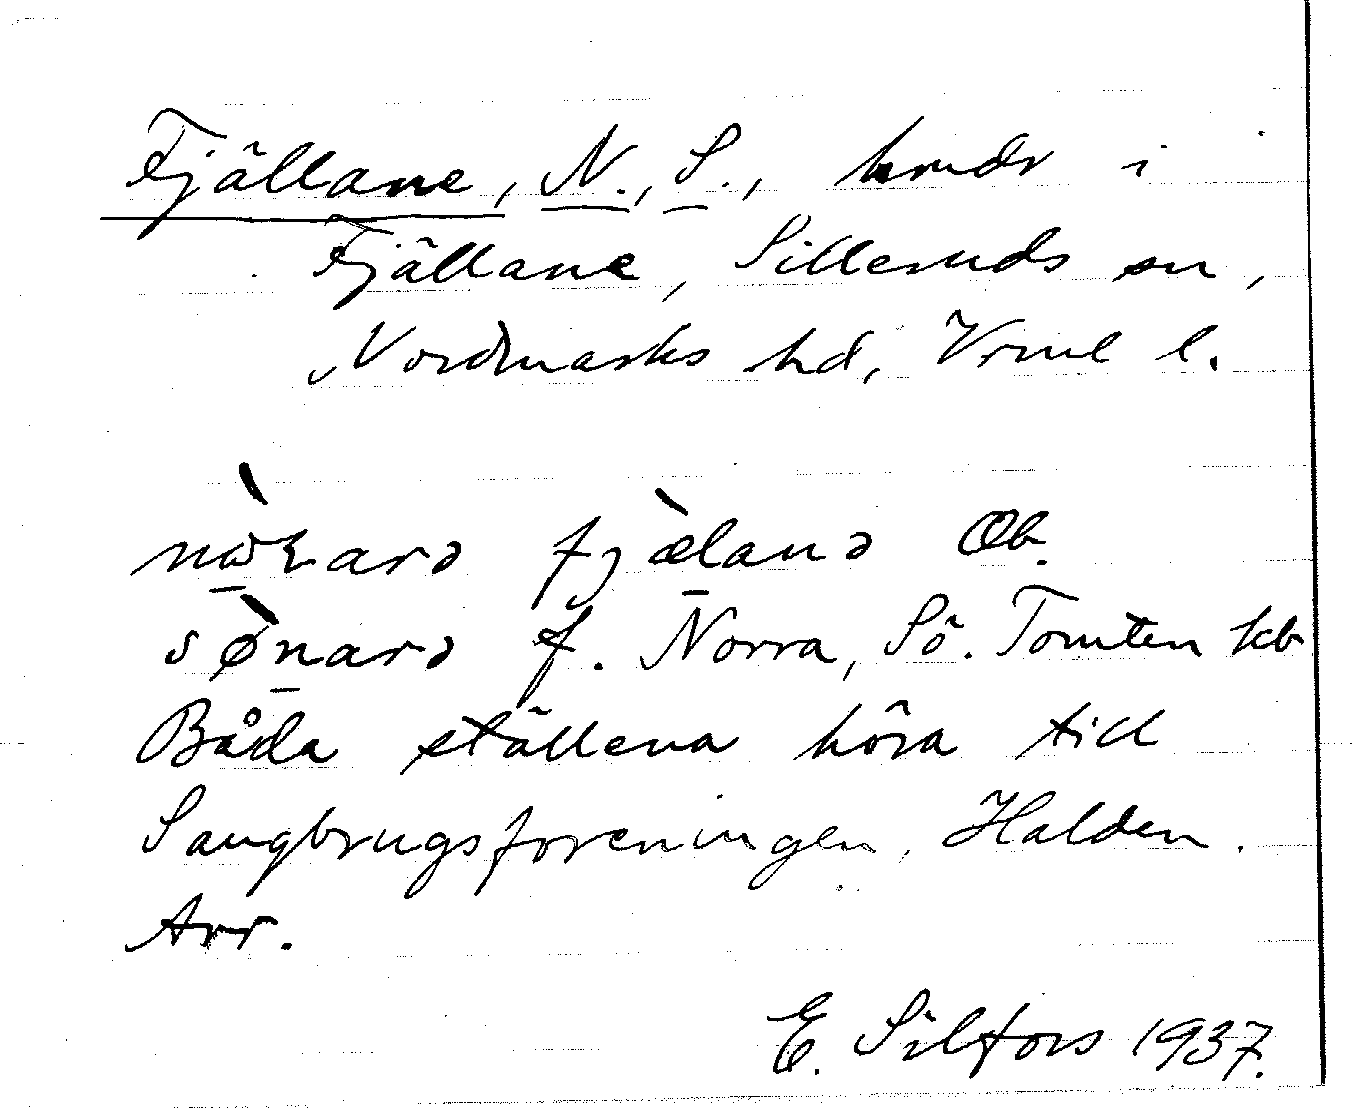 Fjällane, N., S., hmdr i
Fjällane, Silleruds sn,
Nordmarks hd, Vrml l.
nò̱ɽarə fjæ̀lanə Ob.
sø̀ṉarə f. Norra, Sö. Tomten kb
Båda ställena höra till
Saugbrugsforeningen, Halden.
Arr.
E. Silfors 1937.